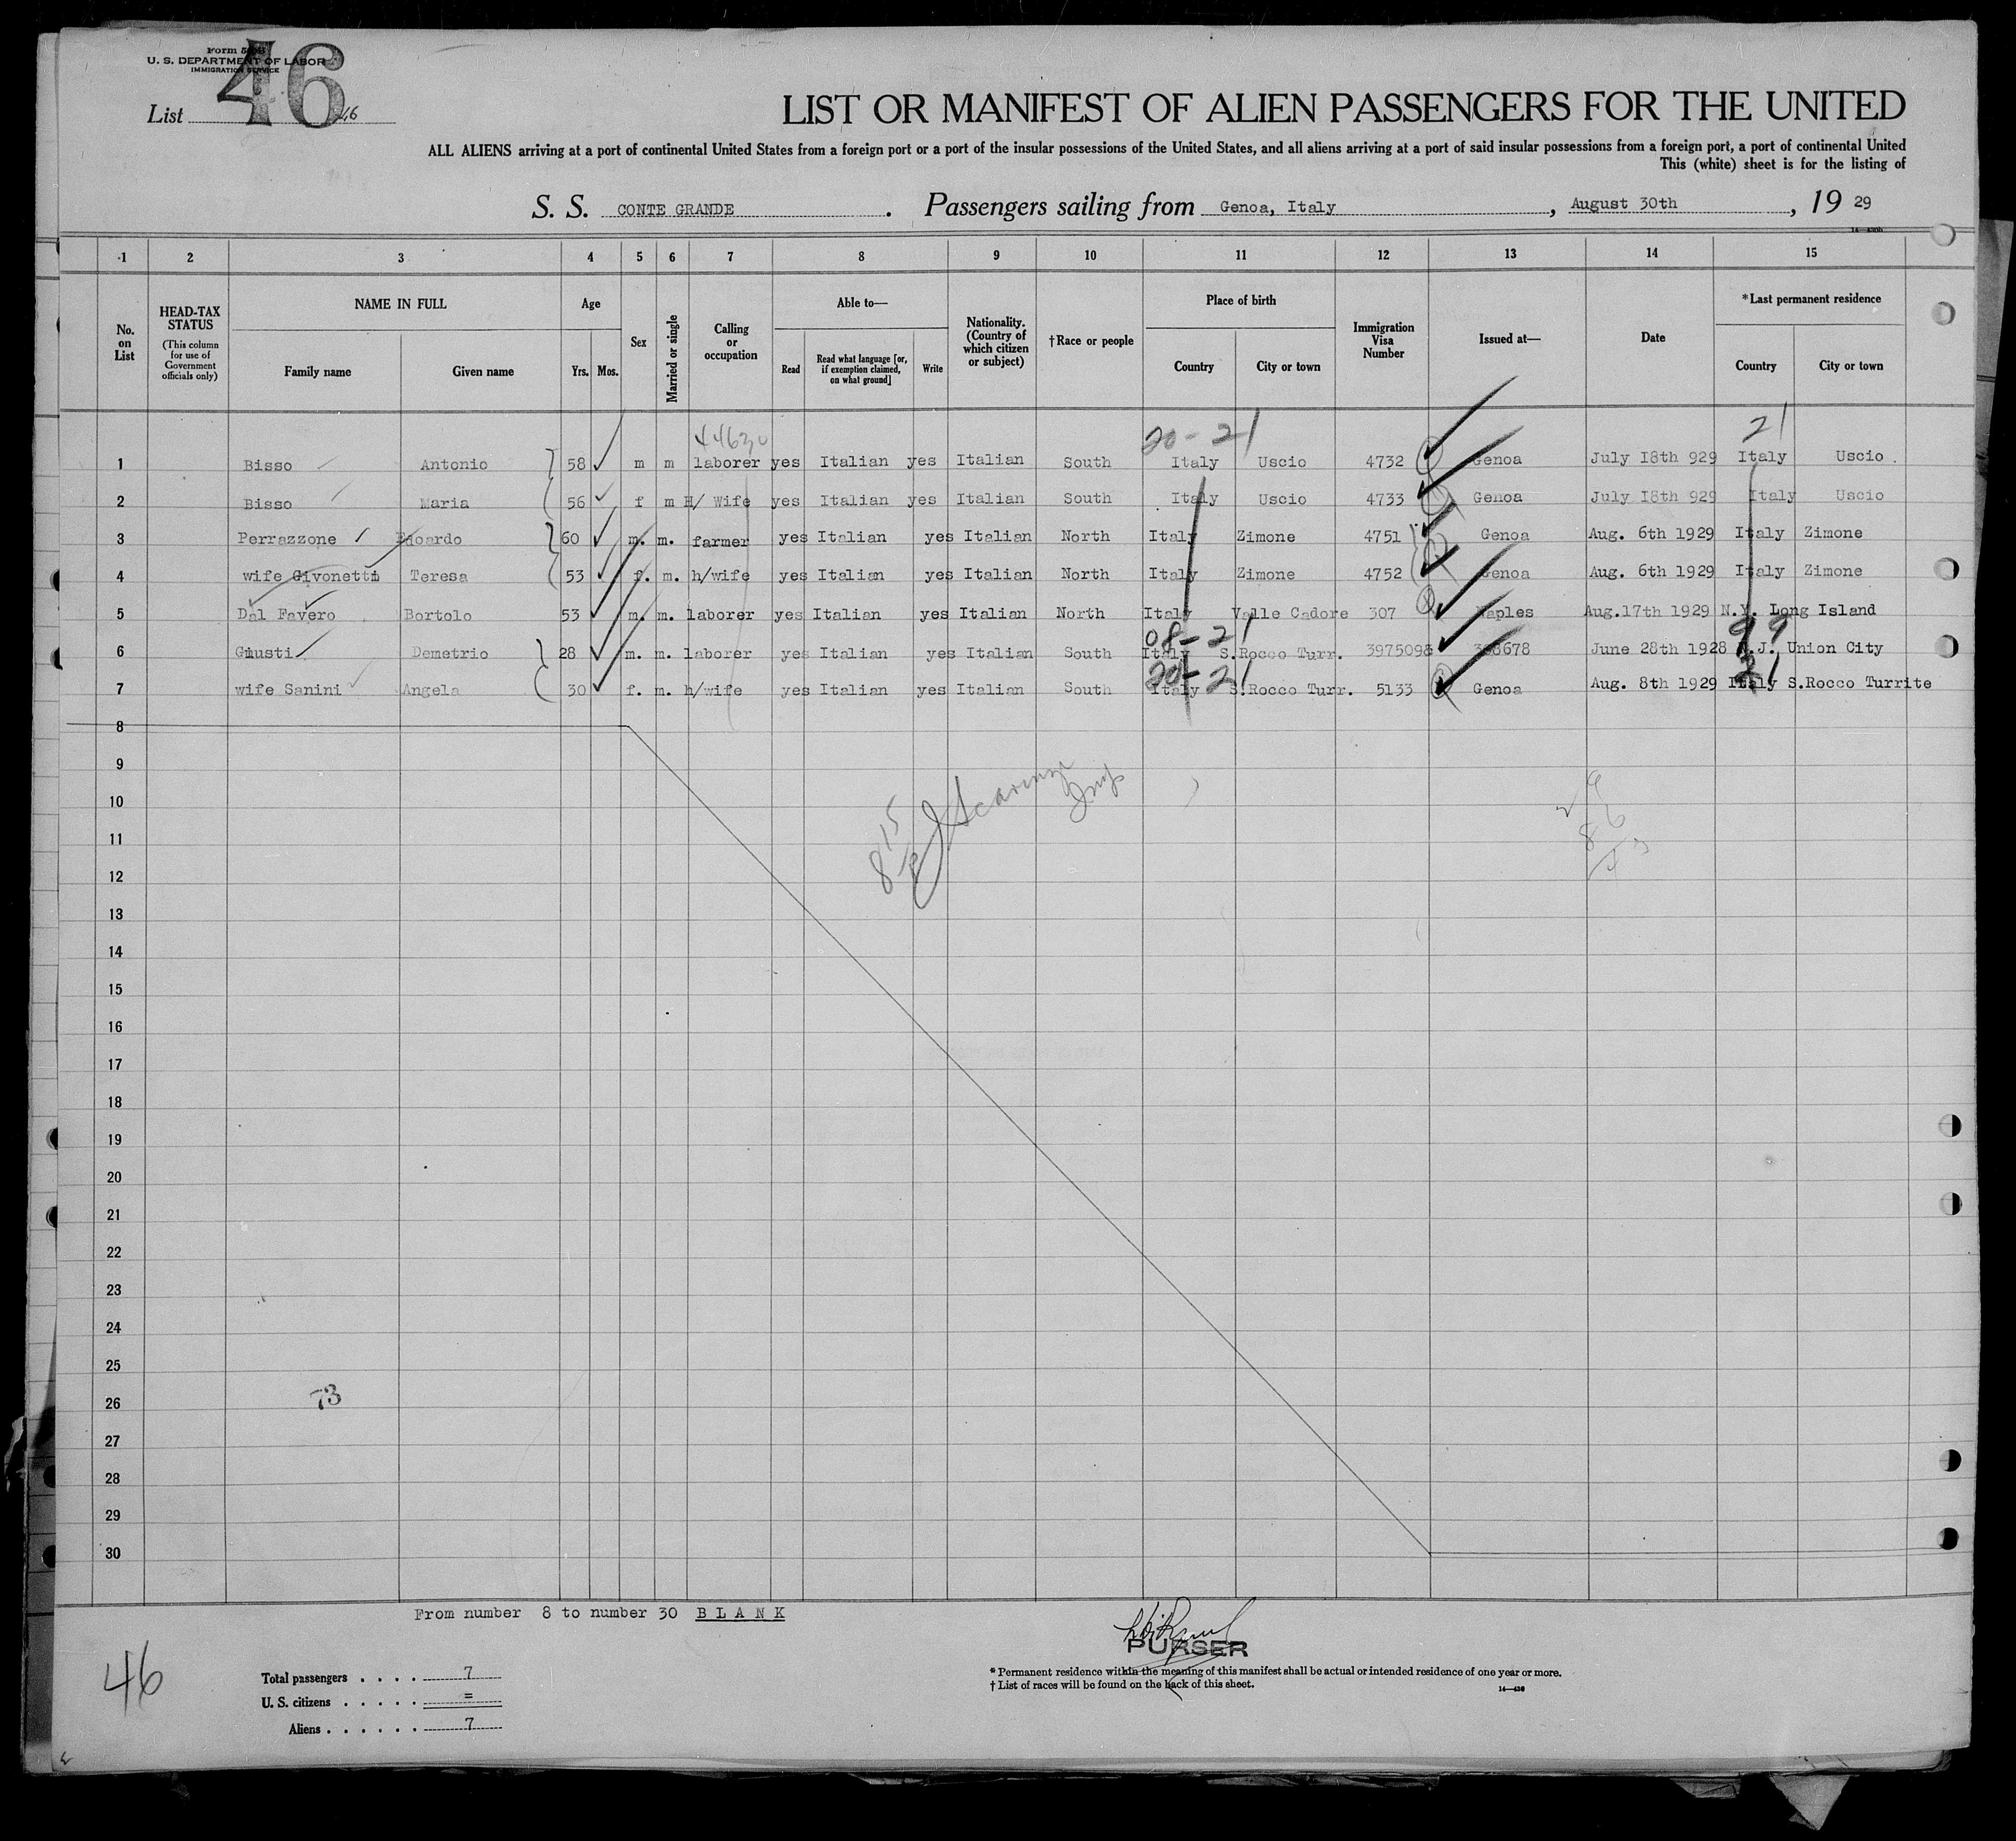 Form
U. S. DEPARTMENT OF LABOR
IMMIGRATION SERVICE
46
List 46
LIST OR MANIFEST OF ALIEN PASSENGERS FOR THE UNITED
ALL ALIENS arriving at a port of continental United States from a foreign port or a port of the insular possessions of the United States, and all aliens arriving at a port of said insular possessions from a foreign port, a port of continental United
This (white) sheet is for the listing of
S. S. CONTE GRANDE. Passengers sailing from Genoa, Italy, August 30th, 19 29
1 2 3 4 5 6 7 8 9 10 11 12 13 14 15
No. on List HEAD-TAX STATUS (This column for use of Government officials only) NAME IN FULL Family name Given name Age Yrs. Mos. Sex Married or single Calling or occupation Able to— Read Read what language [or, if exemption claimed, on what ground] Write Nationality. (Country of which citizen or subject) †Race or people Place of birth Country City or town Immigration Visa Number Issued at— Date *Last permanent residence Country City or town
20-21 21
1 Bisso Antonio 58 m m laborer yes Italian yes Italian South Italy Uscio 4732 Genoa July 18th 929 Italy Uscio.
2 Bisso Maria 56 f m H/ Wife yes Italian yes Italian South Italy Uscio 4733 Genoa July 18th 929 Italy Uscio
3 Perrazzone Edoardo 60 m. m. farmer yes Italian yes Italian North Italy Zimone 4751 Genoa Aug. 6th 1929 Italy Zimone
4 wife Givonetti Teresa 53 f. m. h/wife yes Italian yes Italian North Italy Zimone 4752 Genoa Aug. 6th 1929 Italy Zimone
5 Dal Favero Bortolo 53 m. m. laborer yes Italian yes Italian North Italy Valle Cadore 307 Naples Aug.17th 1929 N.Y. Long Island
08-21 99
6 Giusti Demetrio 28 m. m. laborer yes Italian yes Italian South Italy S.Rocco Turr. June 28th 1928 N.J. Union City
20-21 21
7 wife Sanini Angela 30 f. m. h/wife yes Italian yes Italian South Italy S.Rocco Turr. 5133 Genoa Aug. 8th 1929 Italy S.Rocco Turrite
8
9
10
11
12
13
14
15
16
17
18
19
20
21
22
23
24
25
26
73
27
28
29
30
From number 8 to number 30 B L A N K
PURSER
46
Total passengers . . . . 7
U. S. citizens . . . . . =
Aliens . . . . . . 7
* Permanent residence within the meaning of this manifest shall be actual or intended residence of one year or more.
† List of races will be found on the back of this sheet.
14—430